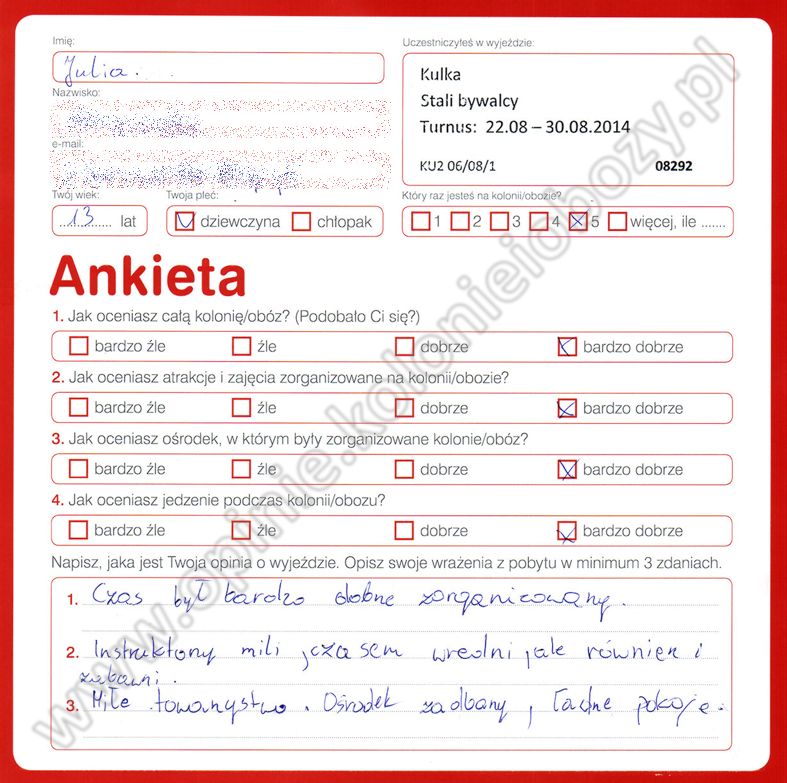 Imię:
Julia.
Uczestniczyłeś w wyjeździe:
Kulka
Stali bywalcy
Turnus: 22.08 – 30.08.2014
KU2 06/08/1 08292
Nazwisko:
e-mail:
Twój wiek:
13 lat
Twoja płeć:
dziewczyna chłopak
Który raz jesteś na kolonii/obozie?
1 2 3 4 5 więcej, ile .......
Ankieta
1. Jak oceniasz całą kolonię/obóz? (Podobało Ci się?)
bardzo źle źle dobrze bardzo dobrze
2. Jak oceniasz atrakcje i zajęcia zorganizowane na kolonii/obozie?
bardzo źle źle dobrze bardzo dobrze
3. Jak oceniasz ośrodek, w którym były zorganizowane kolonie/obóz?
bardzo źle źle dobrze bardzo dobrze
4. Jak oceniasz jedzenie podczas kolonii/obozu?
bardzo źle źle dobrze bardzo dobrze
Napisz, jaka jest Twoja opinia o wyjeździe. Opisz swoje wrażenia z pobytu w minimum 3 zdaniach.
1. Czas był bardzo dobrze zorganizowany.
2. Instruktorzy mili, czasem wredni, ale również i
zabawni.
3. Miłe towarzystwo. Ośrodek zadbany, ładne pokoje.
www.opinie.kolonieiobozy.pl